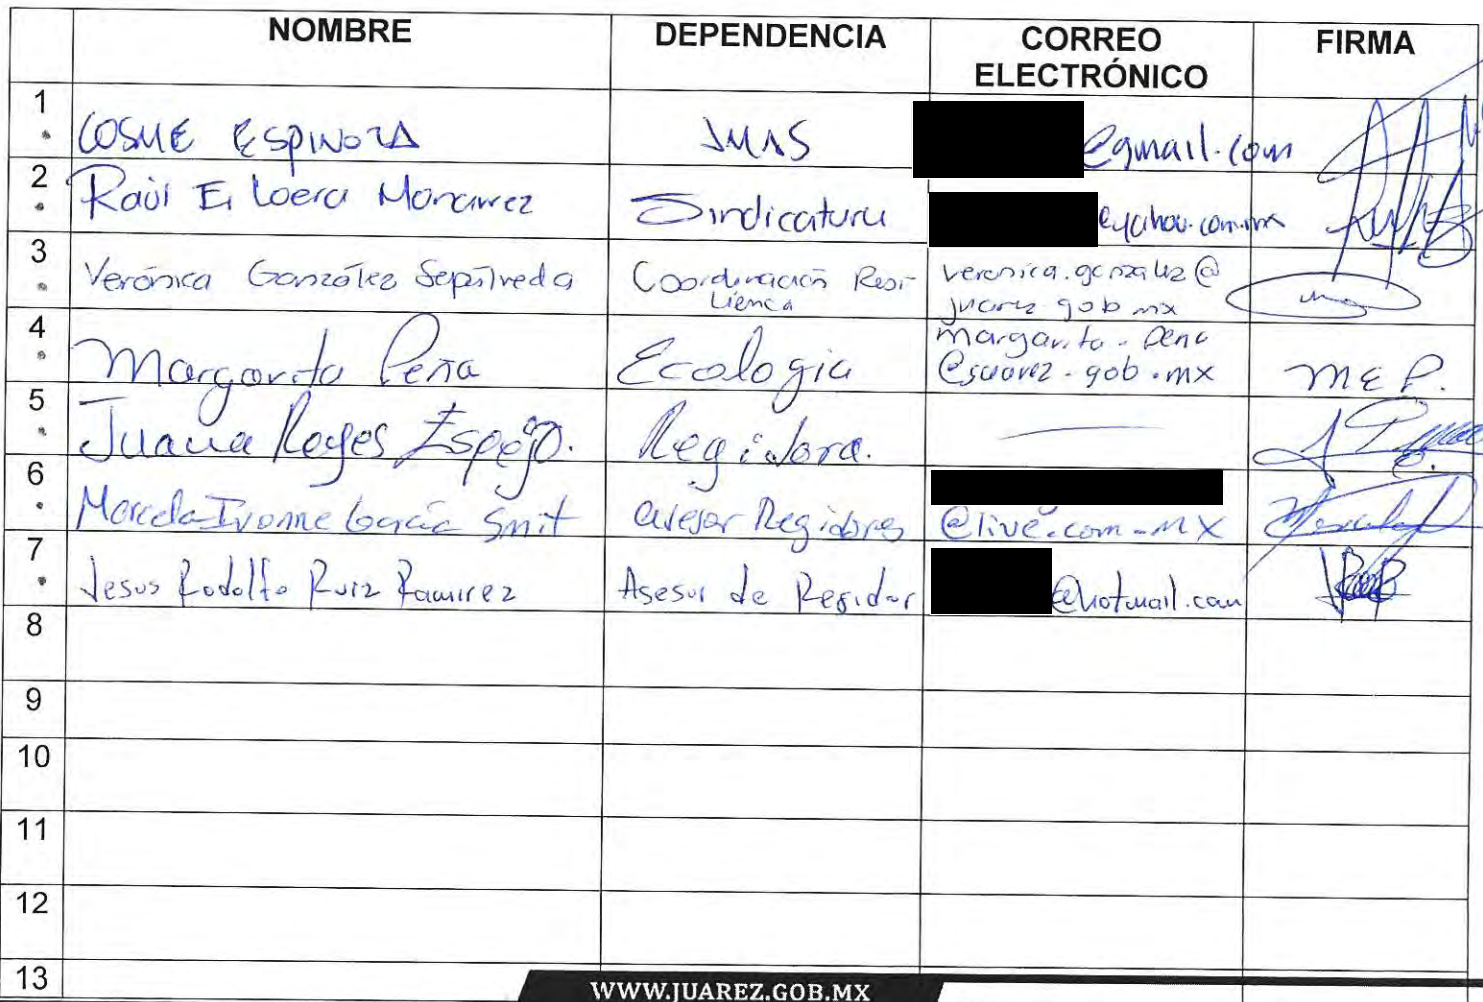 NOMBRE DEPENDENCIA CORREO ELECTRÓNICO FIRMA
1. COSME ESPINOZA JMAS @gmail.com
2. Raúl E. Loera Manarrez Sindicatura @yahoo.com.mx
3. Verónica González Sepúlveda Coordinación Resi-
liencia veronica.gonzalez@
juarez.gob.mx
4. Margarita Peña Ecología margarita.pena
@juarez.gob.mx M E P.
5. Juana Reyes Espejo. Regidora.
6. Marcela Ivonne García Smit asesor Regidores @live.com.MX
7. Jesus Rodolfo Ruiz Ramirez Asesor de Regidor @hotmail.com
8
9
10
11
12
13
WWW.JUAREZ.GOB.MX